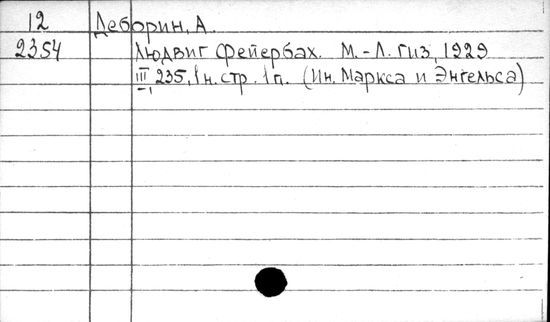 12 Деборин, А.
2354 Людвиг Фейербах. М.-Л. Гиз, 1929
III, 235, 1 н. стр. 1 п. (Ин. Маркса и Энгельса)